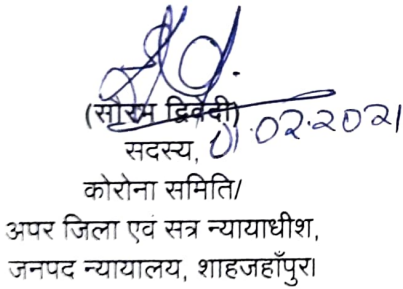 (सौरभ द्विवेदी)
सदस्य, 01.02.2021
कोरोना समिति/
अपर जिला एवं सत्र न्यायाधीश,
जनपद न्यायालय, शाहजहाँपुर।